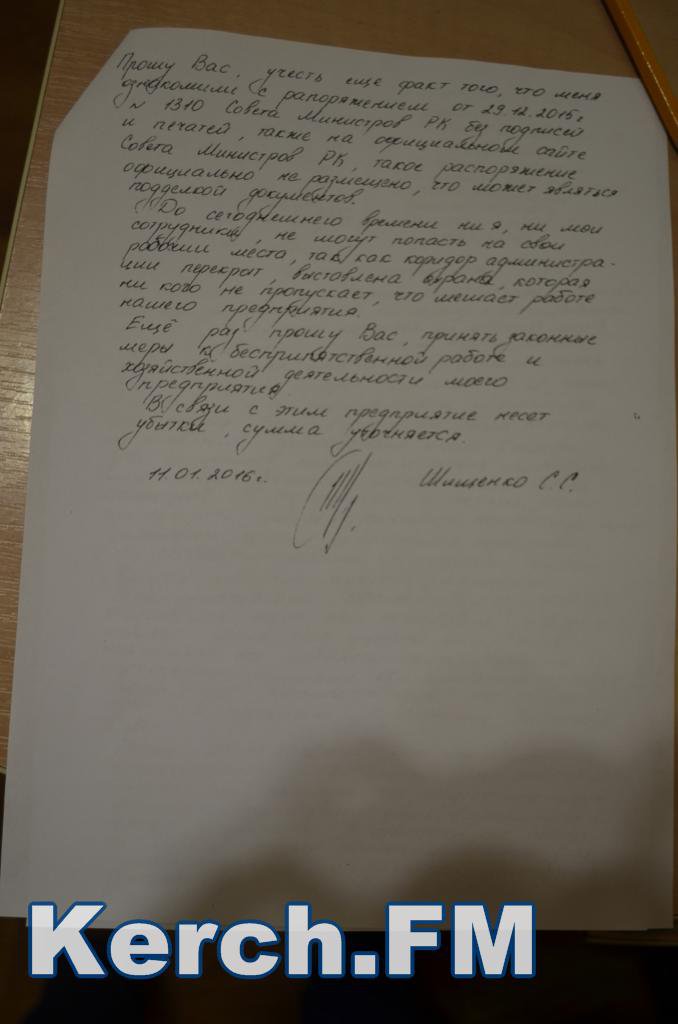 Прошу Вас, учесть еще факт того, что меня
ознакомили с рапоряжением от 29.12.2015г
№ 1310 Совета Министров РК без подписей
и печатей, также на официальном сайте
Совета Министров РК, такое распоряжение
официально не размещено, что может являться
подделкой документов.
До сегоднешнего времени ни я, ни мои
сотрудники, не могут попасть на свои
рабочии места, так как коридор администра-
ции перекрыт, выставлена охрана, которая
ни кого не пропускает, что мешает работе
нашего предприятия.
Ещё раз прошу Вас, принять законные
меры к беспрепятственной работе и
хозяйственной деятельности моего
предприятия.
В связи с этим предприятие несет
убытки, сумма уточняется.
11.01.2016г. Шищенко С.С.
Kerch.FM